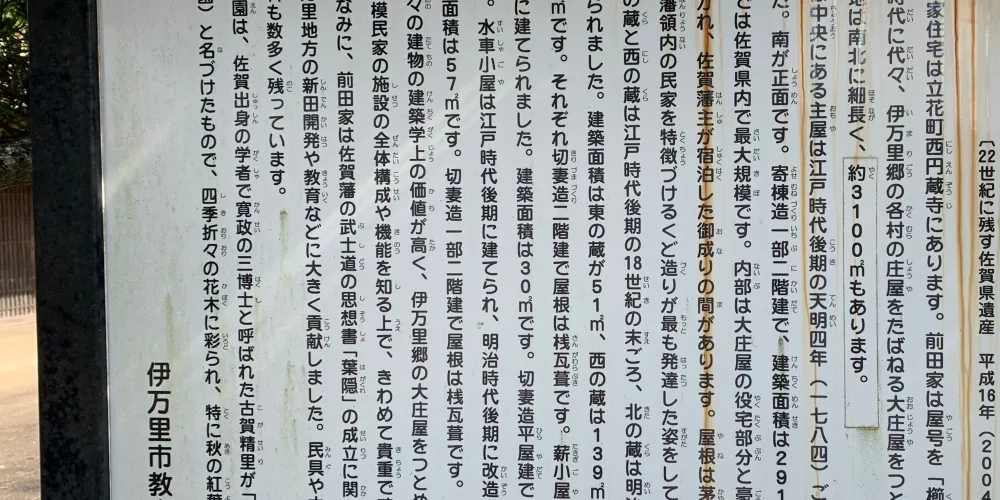 〔22世紀に残す佐賀県遺産　平成16年（200
家住宅は立花町西円蔵寺にあります。前田家は屋号を「櫛
時代に代々、伊万里郷の各村の庄屋をたばねる大庄屋をつと
地は南北に細長く、約3100㎡もあります。
は中央にある主屋は江戸時代後期の天明四年（一七八四）ご
た。南が正面です。寄棟造一部二階建で、建築面積は291
では佐賀県内で最大規模です。内部は大庄屋の役宅部分と豪
かれ、佐賀藩主が宿泊した御成りの間があります。屋根は茅
藩領内の民家を特徴づけるくど造りが最も発達した姿をして
の蔵と西の蔵は江戸時代後期の18世紀の末ごろ、北の蔵は明
られました。建築面積は東の蔵が51㎡、西の蔵は139㎡
㎡です。それぞれ切妻造二階建で屋根は桟瓦葺です。薪小屋
に建てられました。建築面積は30㎡です。切妻造平屋建で
。水車小屋は江戸時代後期に建てられ、明治時代後期に改造
面積は57㎡です。切妻造一部二階建で屋根は桟瓦葺です。
々の建物の建築学上の価値が高く、伊万里郷の大庄屋をつとめ
模民家の施設の全体構成や機能を知る上で、きわめて貴重で
なみに、前田家は佐賀藩の武士道の思想書「葉隠」の成立に関
里地方の新田開発や教育などに大きく貢献しました。民具や古
も数多く残っています。
園は、佐賀出身の学者で寛政の三博士と呼ばれた古賀精里が「
）と名づけたもので、四季折々の花木に彩られ、特に秋の紅葉
伊万里市教